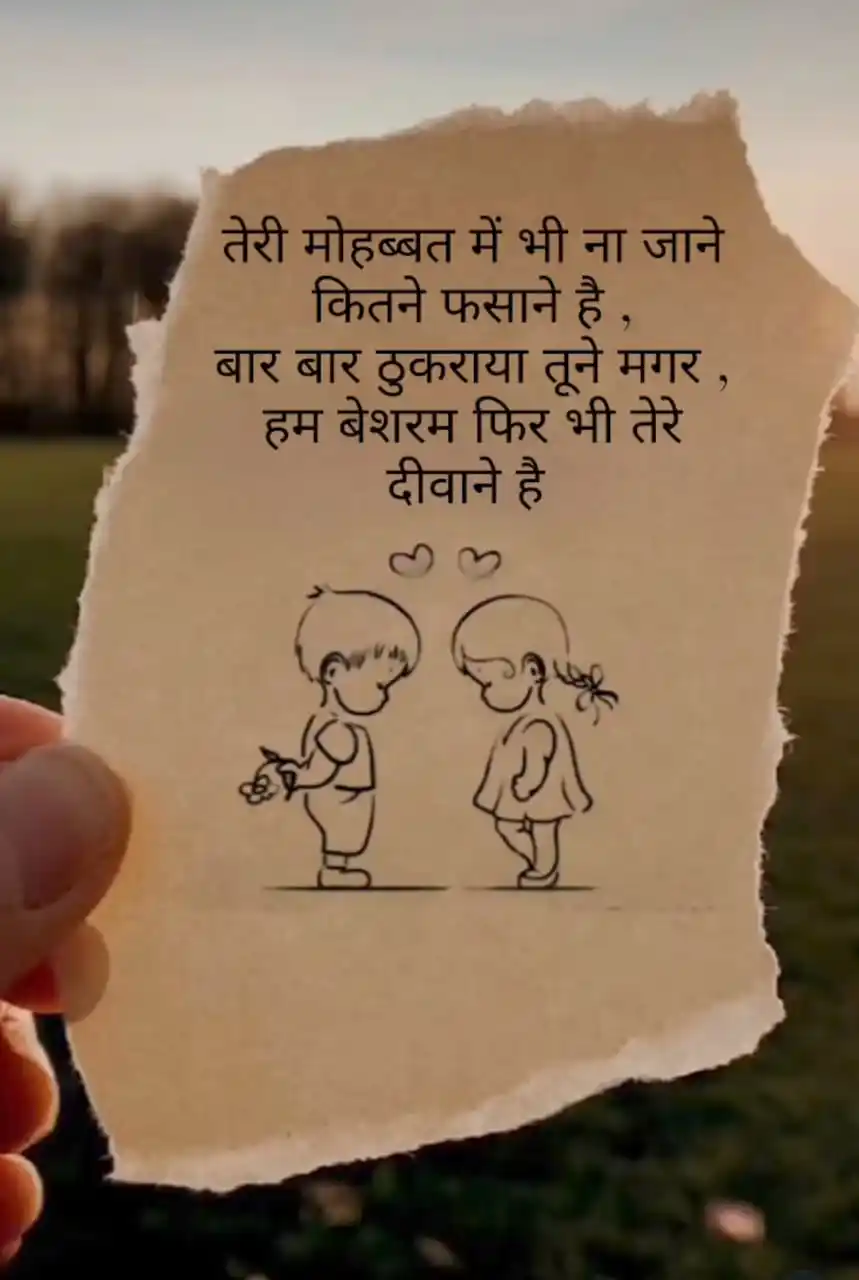 तेरी मोहब्बत में भी ना जाने
कितने फसाने है ,
बार बार ठुकराया तूने मगर ,
हम बेशरम फिर भी तेरे
दीवाने है